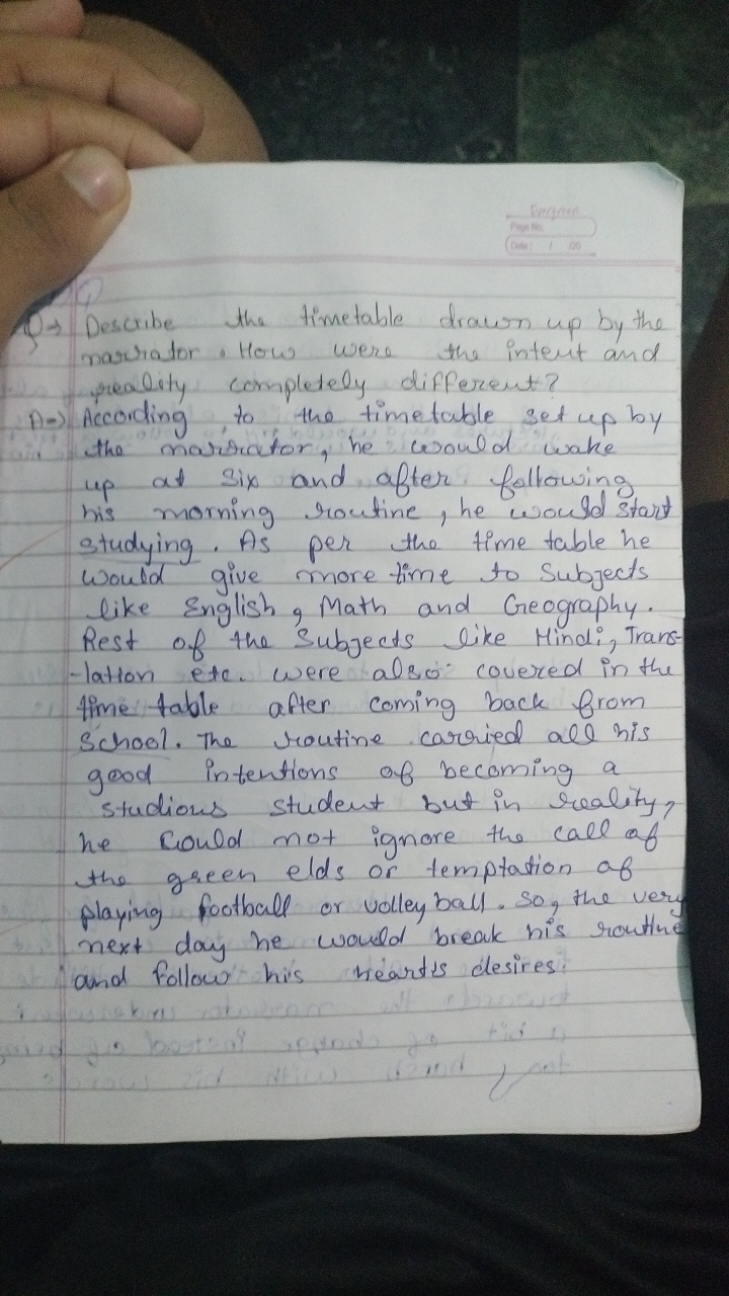 Evergreen
Page No.
Date: / /20
Q→ Describe the timetable drawn up by the
narrator. How were the intent and
reality completely different?
A→ According to the timetable set up by
the narrator, he would wake
up at six and after following
his morning routine, he would start
studying. As per the time table he
would give more time to Subjects
like English, Math and Geography.
Rest of the Subjects like Hindi, Trans-
-lation etc. were also covered in the
time table after coming back from
School. The routine carried all his
good intentions of becoming a
studious student but in reality,
he could not ignore the call of
the green elds or temptation of
playing football or volley ball. So, the very
next day he would break his routine
and follow his heart's desires.